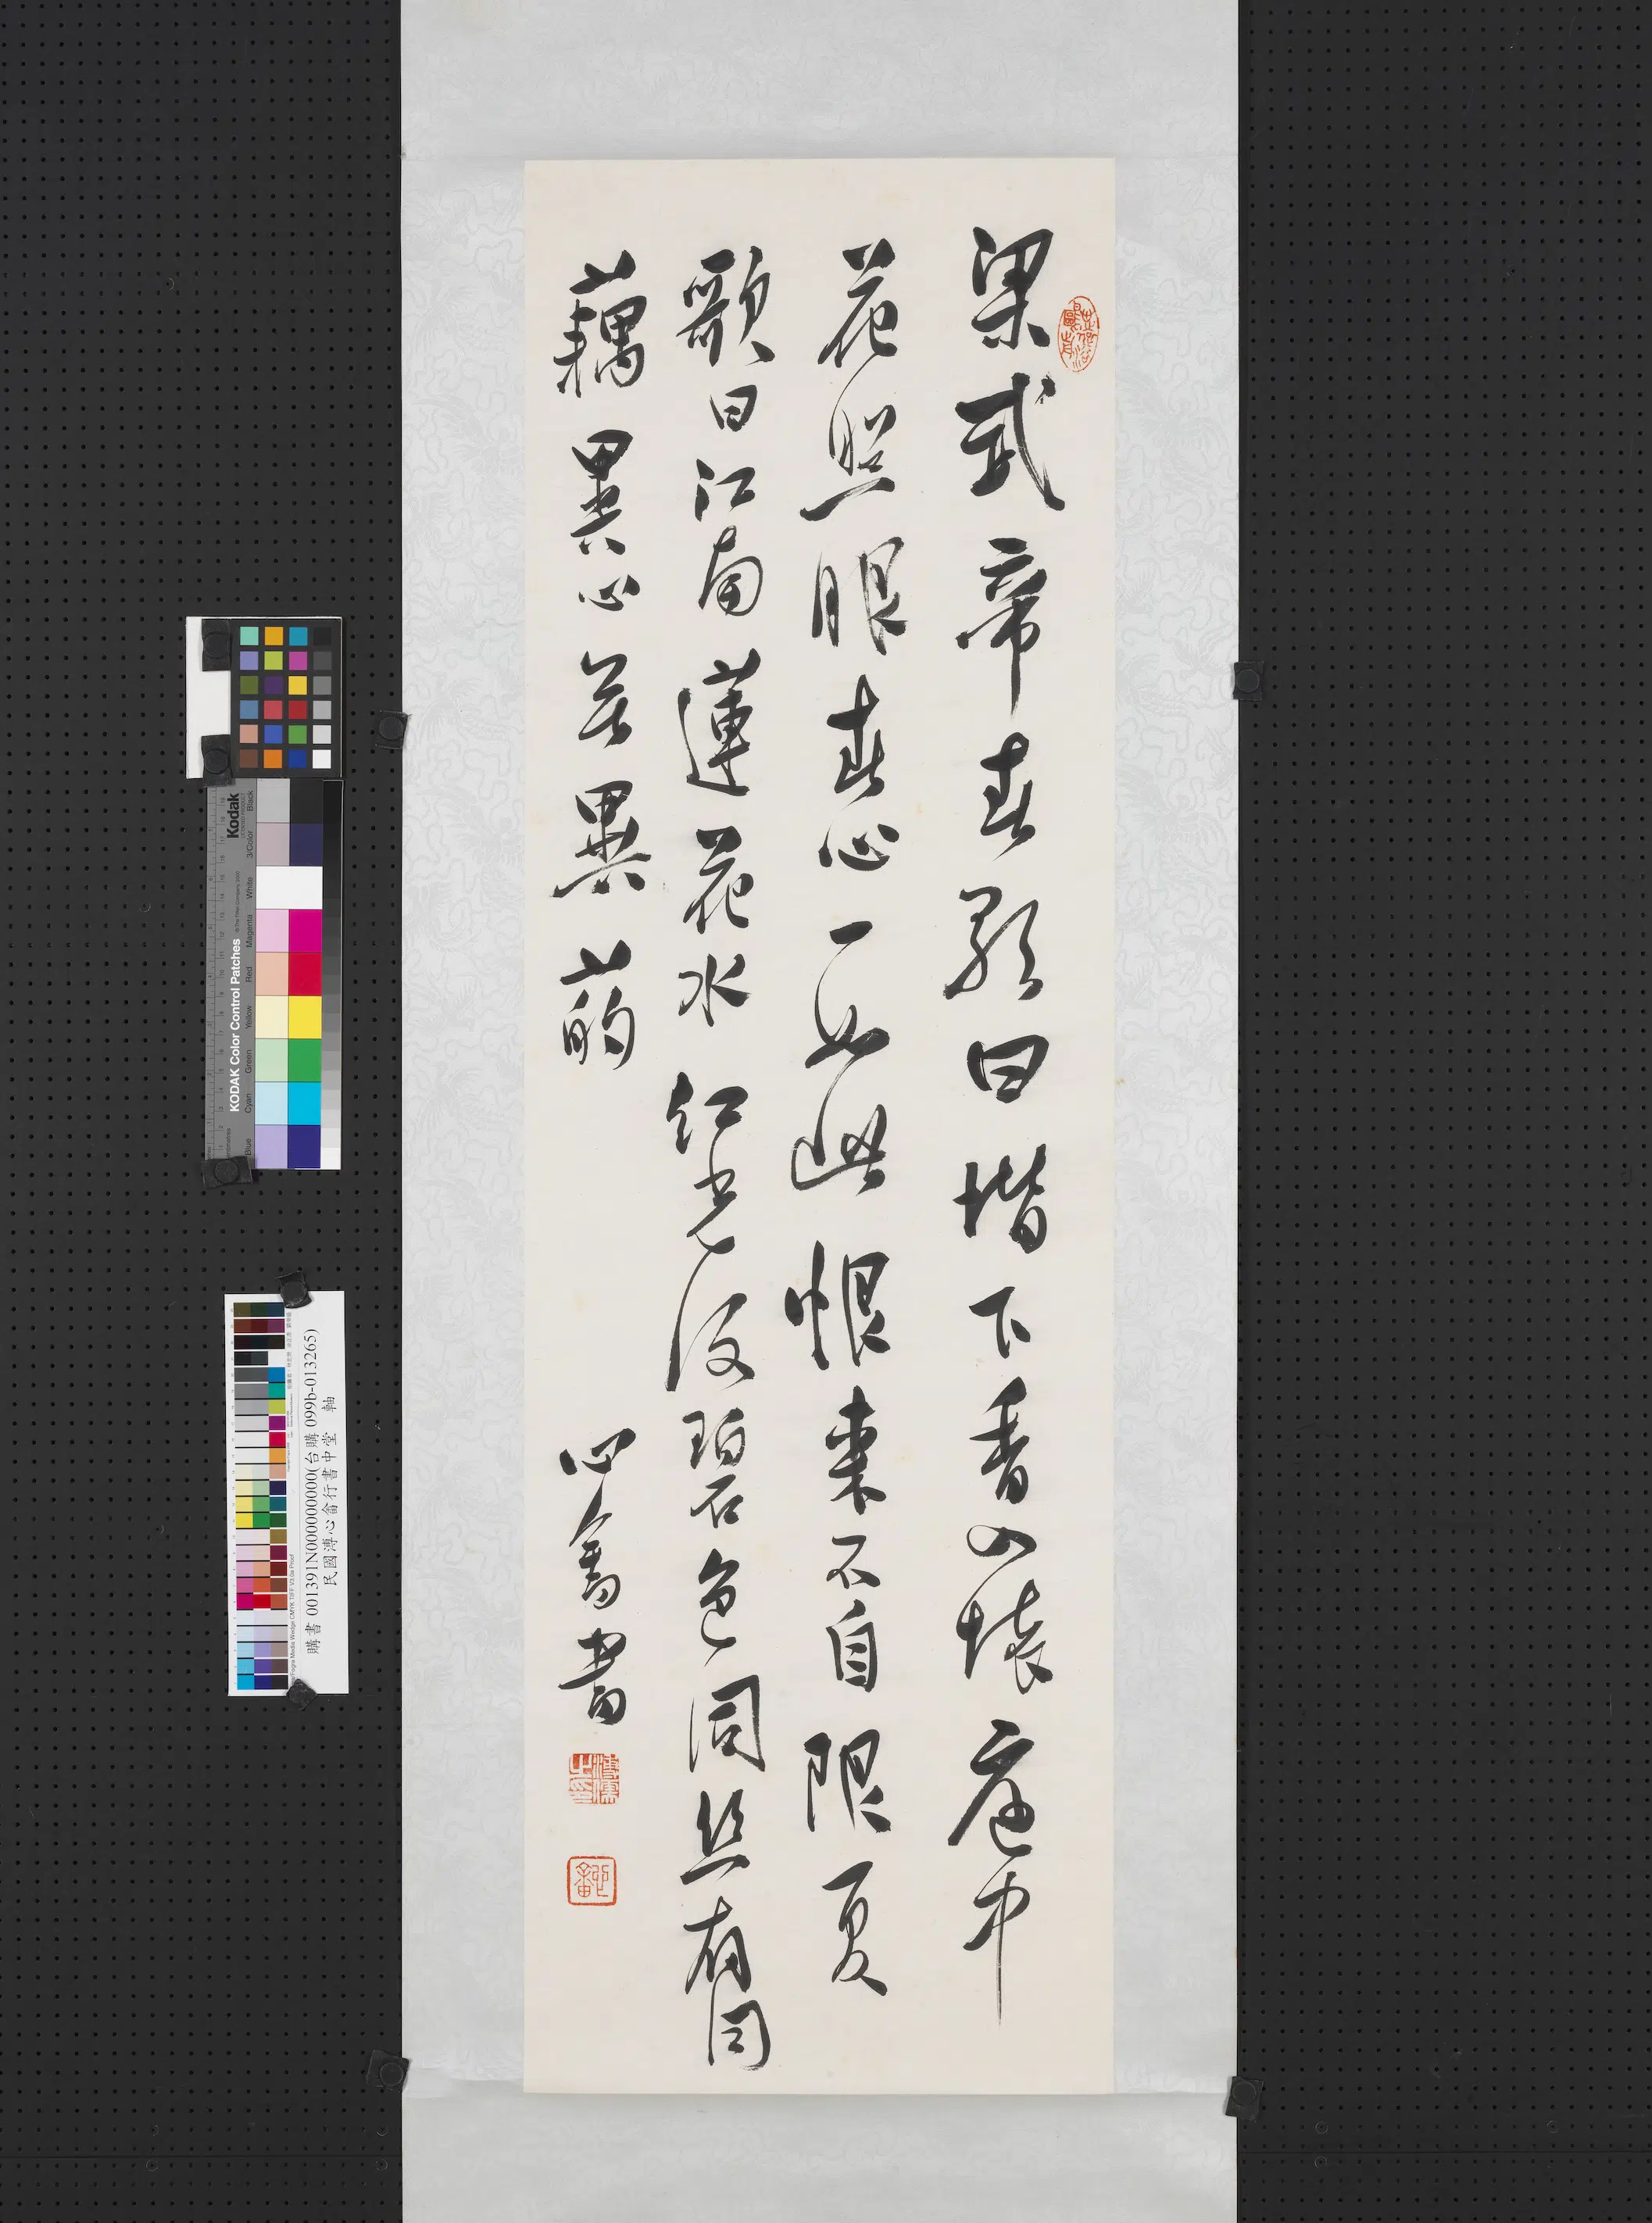 梁武帝春歌曰堦下香入懷庭中
花照眼春心一如此恨來不自限夏
歌曰江南蓮花水紅光復碧色同絲有同
藕異心異菂
心畬書
溥儒之印
KODAK Color Control Patches
Kodak
Blue Cyan Green Yellow Red Magenta White 3/Color Black
購書 001391N000000000(台購 099b-013265)
民國溥心畬行書中堂 軸